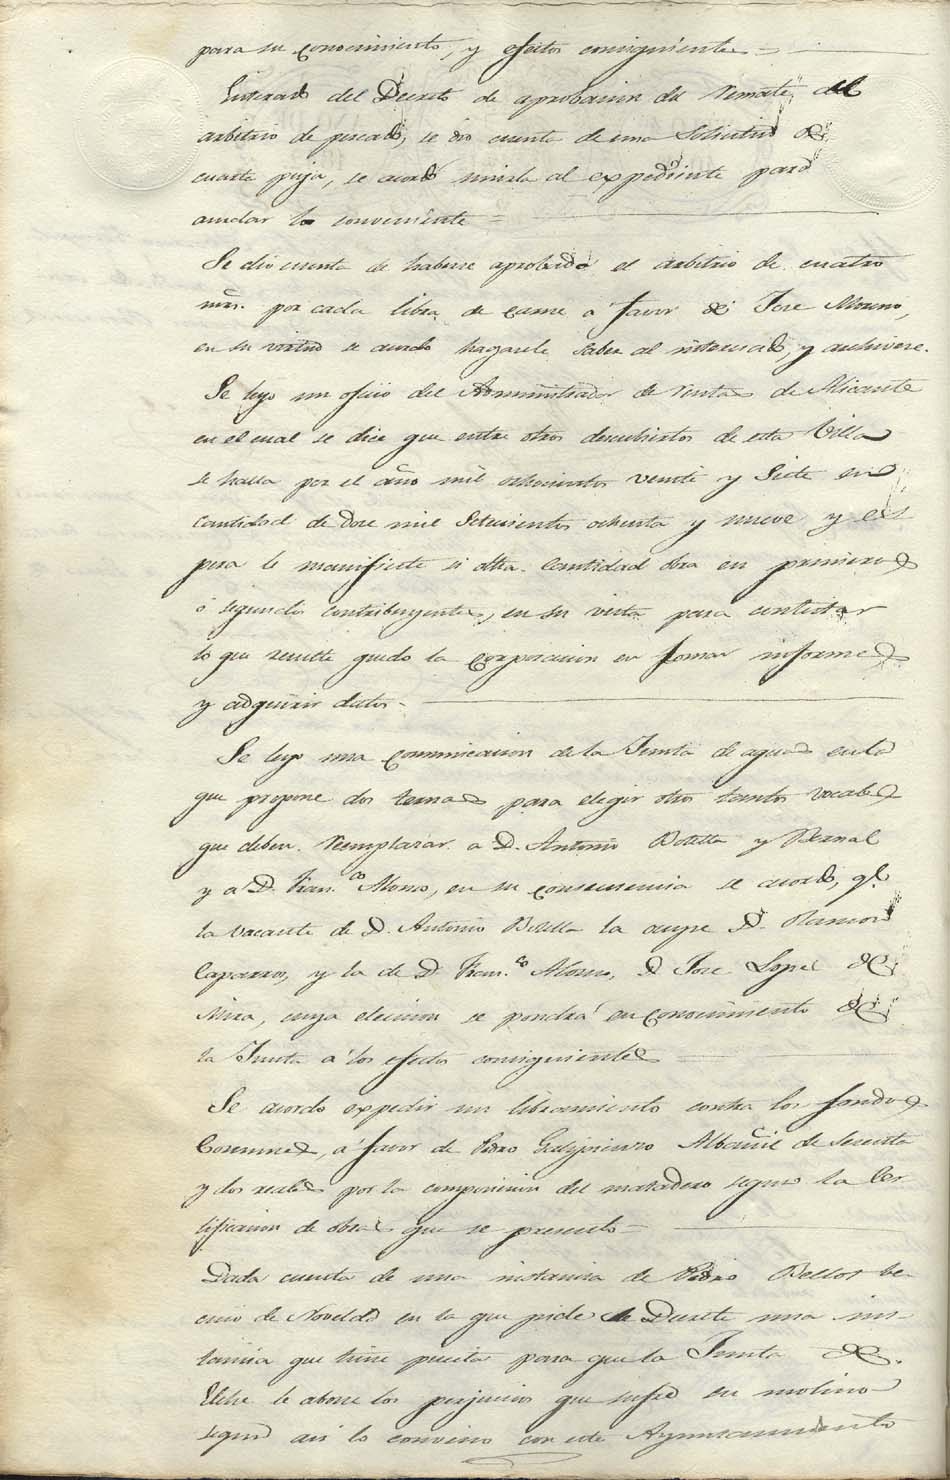 para su conocimiento, y efectos consiguientes =
Enterado del Decreto de aprobacion del remate del
arbitrio de pescado, se dio cuenta de una Solicitud de
cuarta puja, se acordó unirla al expediente para
acordar lo conveniente =
Se dio cuenta de haberse aprobado el arbitrio de cuatro
mrs. por cada libra de carne a favor de Jose Moreno,
en su virtud se acordo hagasele saber al interesado, y archivese.
Se leyo un oficio del Administrador de rentas de Alicante
en el cual se dice que entre otros descubiertos de esta Villa
se halla por el año mil ochocientos veinte y siete en
cantidad de doce mil setecientos ochenta y nueve y es
pera le manifieste si dha. Cantidad obra en primeros
ó segundos contribuyentes, en su vista para contestar
lo que resulte quedo la corporacion en tomar informes
y adquirir datos.
Se leyo una comunicacion de la Junta de aguas en la
que propone dos ternas para elegir otros tantos vocales
que deben reemplazar a D. Antonio Botella y Bernal
y a D. Fran.co Alonso, en su consecuencia se acordó, q.e
la vacante de D. Antonio Botella la ocupe D. Ramon
Caparros, y la de D. Fran.co Alonso, D. Jose Lopez de
Mira, cuya eleccion se pondrá en conocimiento de
la Junta a los efectos consiguientes
Se acordo expedir un libramiento contra los fondos
Comunes, a favor de Pedro Albañil de Sesenta
y dos reales por la composicion del matadero segun la Cer
tificacion de obras que se presento
Dada cuenta de una instancia de Pedro Bellot be
cino de Novelda en la que pide se Decrete una ins-
tancia que tiene puesta para que la Junta de
Elche le abone los perjuicios que sufre su molino
segun asi lo convino con este Ayuntamiento